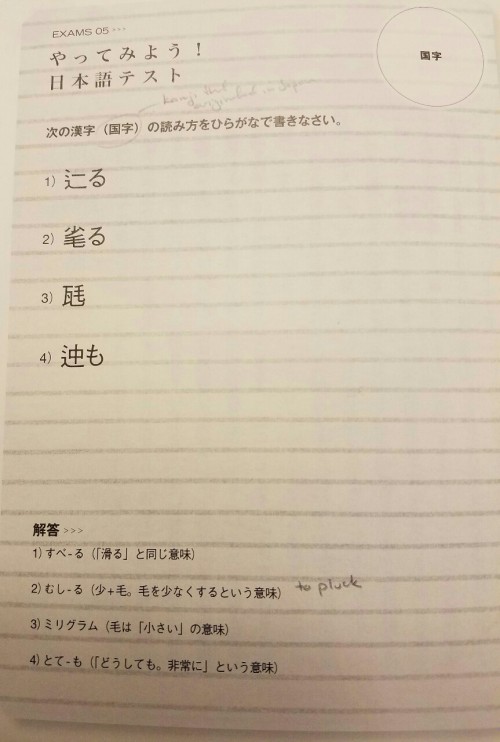 EXAMS 05 >>>
やってみよう！
日本語テスト
国字
kanji that
originated in Japan
次の漢字（国字）の読み方をひらがなで書きなさい。
1）辷る
2）毟る
3）瓱
4）迚も
解答 >>>
1）すべ-る（「滑る」と同じ意味）
2）むし-る（少+毛。毛を少なくするという意味） to pluck
3）ミリグラム（毛は「小さい」の意味）
4）とて-も（「どうしても。非常に」という意味）